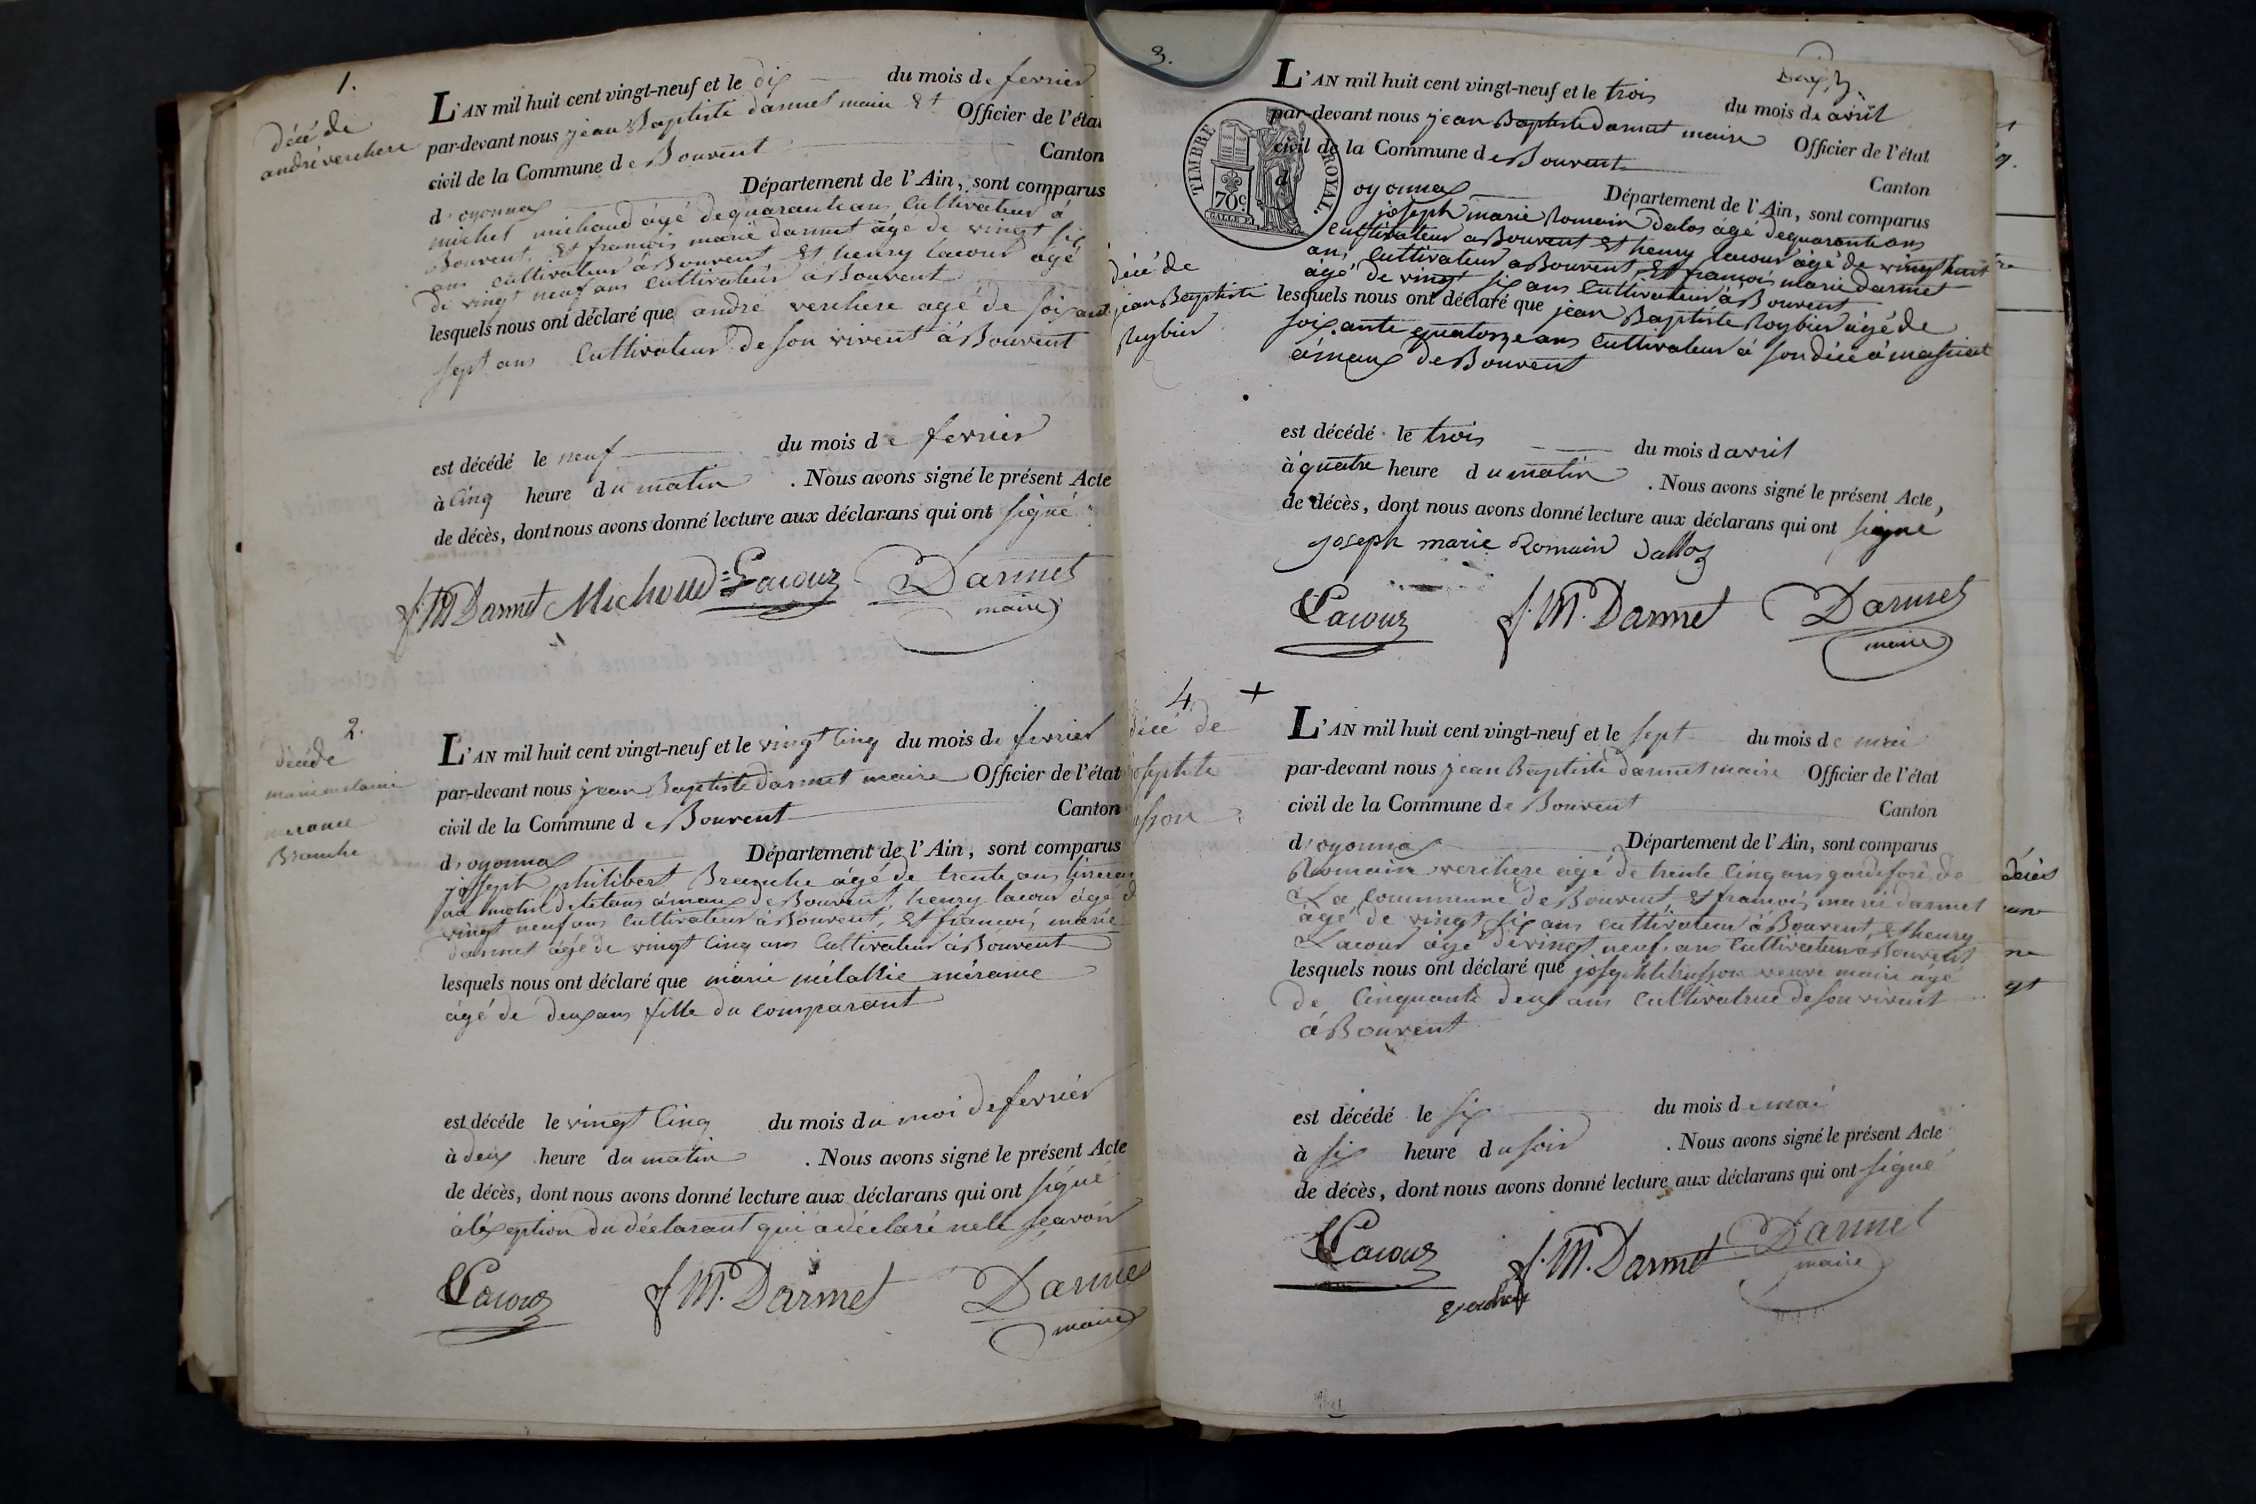 1.
décé de
andré verchere
L'AN mil huit cent vingt-neuf et le dix du mois de fevrier
par-devant nous jean Baptiste darmet maire et Officier de l'état
civil de la Commune de Bouvent Canton
d'oyonnax Département de l'Ain, sont comparus
michel michaud âgé de quarante ans Cultivateur à
Bouvent, Et francois marie darmet âgé de vingt six
ans cultivateur à Bouvent Et henry lacour âgé
de vingt neuf ans Cultivateur à Bouvent
lesquels nous ont déclaré que andré verchere agé de soixante
sept ans Cultivateur de son vivent à Bouvent
est décédé le neuf du mois de fevrier
à Cinq heure du matin . Nous avons signé le présent Acte
de décès, dont nous avons donné lecture aux déclarans qui ont signé
f. M Darmet Michoud Lacour Darmet
maire
2.
décé de
marie melanie
merance
Branche
L'AN mil huit cent vingt-neuf et le vingt Cinq du mois de fevrier
par-devant nous jean Baptiste darmet maire Officier de l'état
civil de la Commune de Bouvent Canton
d'oyonnax Département de l'Ain, sont comparus
joseph philibert Branche âgé de trente ans
Bouvent, henry lacour âgé de
vingt neuf ans Cultivateur à Bouvent, Et francois marie
darmet âgé de vingt Cinq ans Cultivateur à Bouvent
lesquels nous ont déclaré que marie mélattie mérance
âgé de deux ans fille du comparant
est décéde le vingt Cinq du mois du moi de fevrier
à deux heure du matin . Nous avons signé le présent Acte
de décès, dont nous avons donné lecture aux déclarans qui ont signé
à léxeption du déclarant qui a déclaré ne le sçavoir
Lacour f. M. Darmet Darmet
maire
3.
décé de
jean Baptiste
Reybier
L'AN mil huit cent vingt-neuf et le trois du mois de avril
par-devant nous jean Baptiste darmet maire Officier de l'état
civil de la Commune de Bouvent Canton
d oyonnax Département de l'Ain, sont comparus
TIMBRE ROYAL.
70c.
joseph marie Romain dalos âgé de quarante ans
cultivateur à Bouvent Et henry lacour âgé de vingt huit
an, Cultivateur à Bouvent, Et francois marie darmet
âgé de vingt six ans Cultivateur à Bouvent
lesquels nous ont déclaré que jean Baptiste Roybier âgé de
soixante quatorze ans Cultivateur à son décé à massiat
âmaux de Bouvent
est décédé le trois du mois d avril
à quatre heure du matin . Nous avons signé le présent Acte,
de décès, dont nous avons donné lecture aux déclarans qui ont signé
Joseph marie Romain Dalloz
Lacour f. M. Darmet Darmet
maire
4. +
décé de
josephte
L'AN mil huit cent vingt-neuf et le sept du mois de mai
par-devant nous jean Baptiste darmet maire Officier de l'état
civil de la Commune de Bouvent Canton
d'oyonnax Département de l'Ain, sont comparus
Romain verchere âgé de trente Cinq ans garde foré de
La Commune de Bouvent, Et francois marie darmet
âgé de vingt six ans cultivateur à Bouvent, Et henry
Lacour âgé de vingt neuf ans Cultivateur à Bouvent
lesquels nous ont déclaré que josephte veuve maire âgé
de Cinquante deux ans Cultivatrice de son vivent
à Bouvent
est décédé le six du mois de mai
à six heure du soir . Nous avons signé le présent Acte
de décès, dont nous avons donné lecture aux déclarans qui ont signé
Lacour f. M. Darmet Darmet
maire
verchere